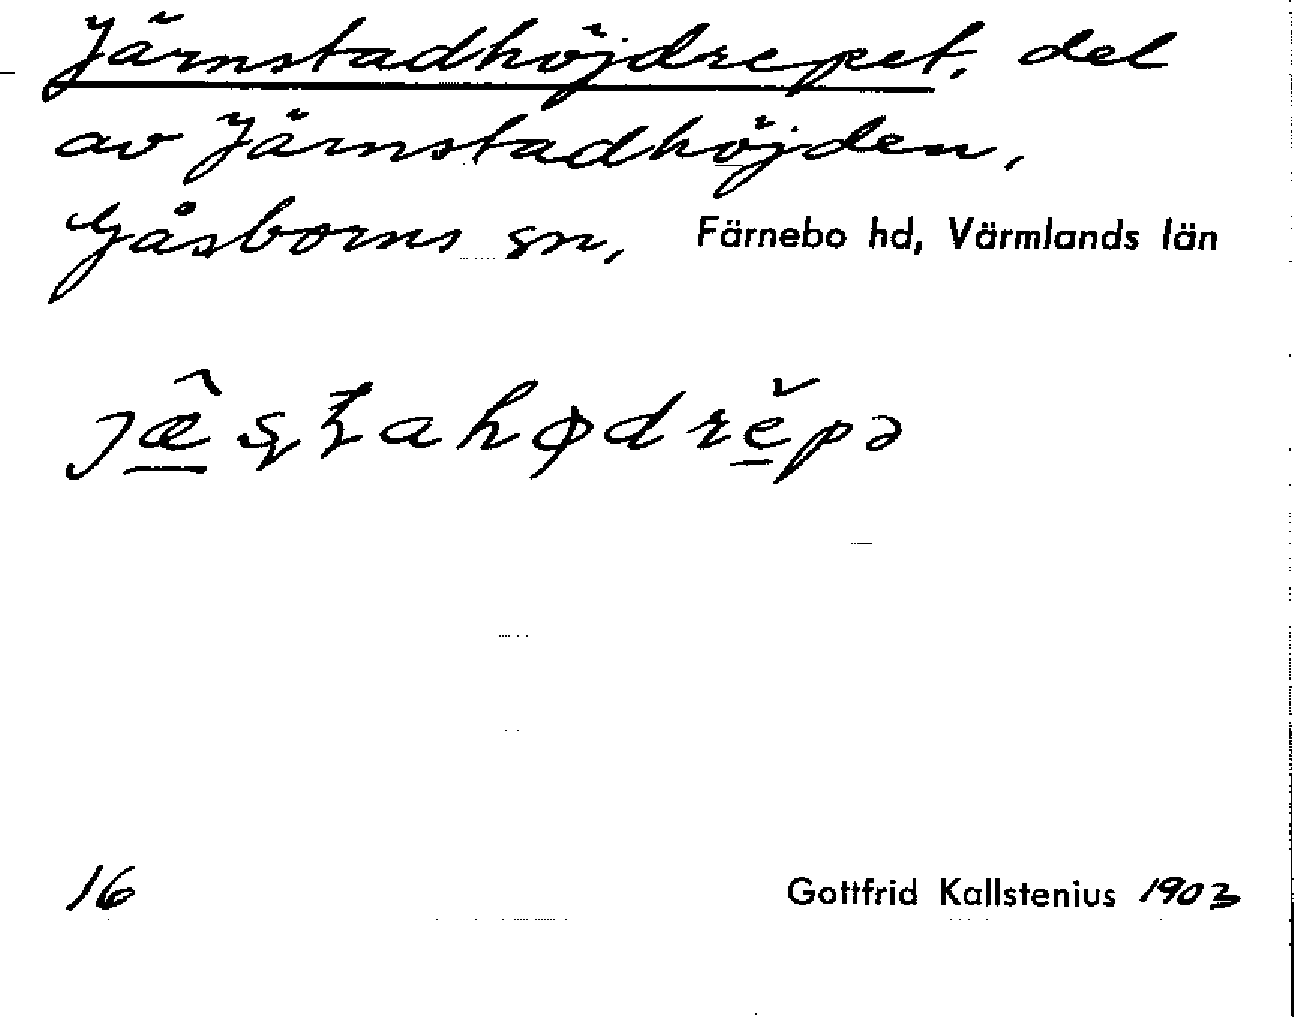 Järnstadhöjdrepet, del
av Järnstadhöjden,
Gåsborns sn, Färnebo hd, Värmlands län
jæ̂ʂʈahødrĕpə
16 Gottfrid Kallstenius 1903